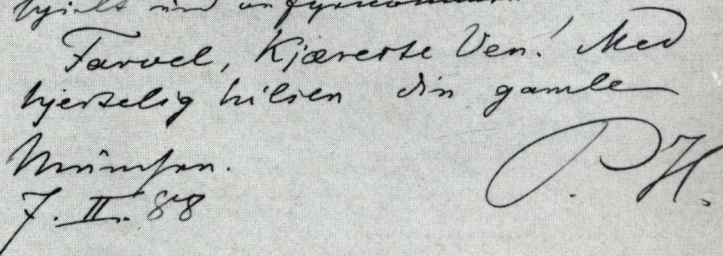 Farvel, Kjæreste Ven! Med
hjertelig hilsen din gamle
P. H.
München.
7. II. 88